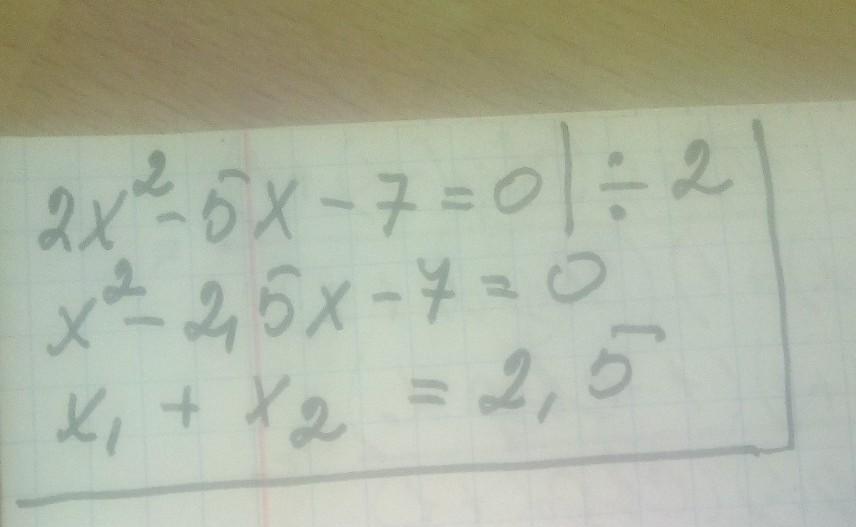 2x² - 5x - 7 = 0 | ÷ 2
x² - 2,5x - 7 = 0
x₁ + x₂ = 2,5